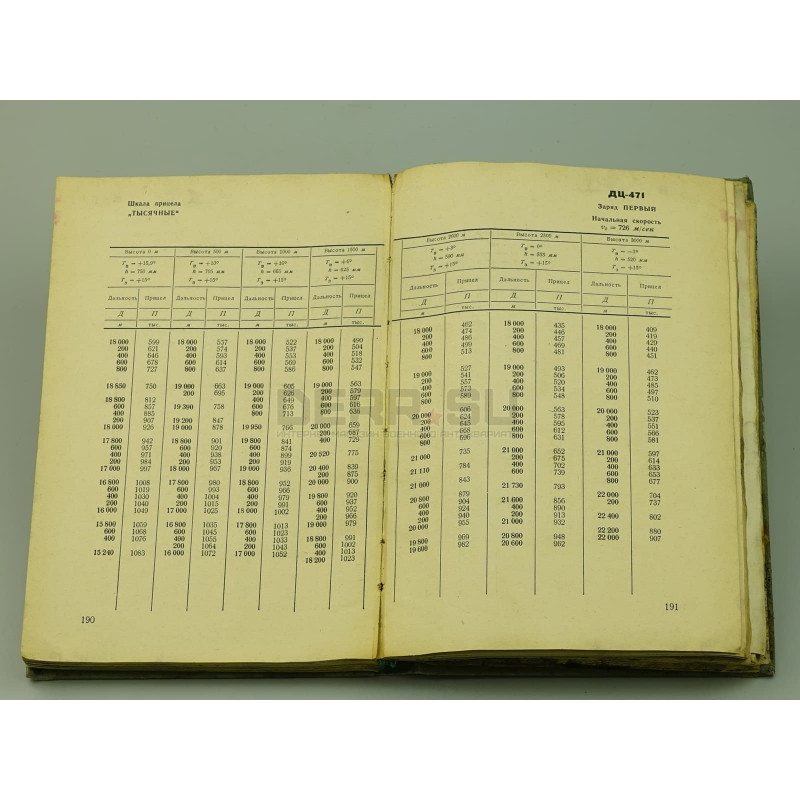 Шкала прицела
„ТЫСЯЧНЫЕ"
Высота 0 м Высота 500 м Высота 1000 м Высота 1500 м
h = 750 мм
Дальность Прицел Дальность Прицел Дальность Прицел Дальность Прицел
Д П Д П Д П Д П
м тыс. м тыс. м тыс. м тыс.
18 000 599 18 000 557 18 000 522 18 000 490
200 621 200 574 200 537 200 504
400 646 400 593 400 553 400 518
600 678 600 614 600 569 600 532
800 727 800 637 800 586 800 547
18 850 750 19 000 663 19 000 605 19 000 563
200 695 200 626 200 579
18 800 812 400 649 400 597
600 857 19 390 758 600 676 600 616
400 885 800 713 800 636
200 907 19 200 847
18 000 926 19 000 878 19 050 766 20 000 659
200 687
17 800 942 18 800 901 19 800 841 400 729
600 957 600 920 600 874
400 971 400 938 400 899 20 520 775
200 984 200 953 200 919
17 000 997 18 000 967 19 000 936 20 400 839
200 875
16 800 1008 17 800 980 18 800 952 20 000 900
600 1019 600 993 600 966
400 1030 400 1004 400 979 19 800 920
200 1040 200 1015 200 991 600 937
16 000 1049 17 000 1025 18 000 1002 400 952
200 966
15 800 1059 16 800 1035 17 800 1013 19 000 979
600 1068 600 1045 600 1023
400 1076 400 1055 400 1033 18 800 991
200 1064 200 1043 600 1002
15 240 1083 16 000 1072 17 000 1052 400 1013
18 200 1023
190
ДЦ-471
Заряд ПЕРВЫЙ
Начальная скорость
v₀ = 726 м/сек
Высота 2000 м Высота 2500 м Высота 3000 м
Дальность Прицел Дальность Прицел Дальность Прицел
Д П Д П Д П
м тыс. м тыс. м тыс.
18 000 462 18 000 435 18 000 409
200 474 200 446 200 419
400 486 400 457 400 429
600 499 600 469 600 440
800 513 800 481 800 451
19 000 527 19 000 493 19 000 462
200 541 200 506 200 473
400 557 400 520 400 485
600 573 600 534 600 497
800 589 800 548 800 510
20 000 606 20 000 563 20 000 523
200 624 200 578 200 537
400 645 400 595 400 551
600 668 600 612 600 566
800 696 800 631 800 581
21 000 735 21 000 652 21 000 597
200 675 200 614
21 110 784 400 702 400 633
600 739 600 653
21 000 843 800 677
21 730 793
20 800 879 22 000 704
600 904 21 600 856 200 737
400 924 400 890
200 940 200 913 22 400 802
20 000 955 21 000 932
22 200 880
19 800 969 20 800 948 22 000 907
19 600 982 20 600 962
191
DERR.SU
ИНТЕРНЕТ-МАГАЗИН ВОЕННОГО АНТИКВАРИАТА